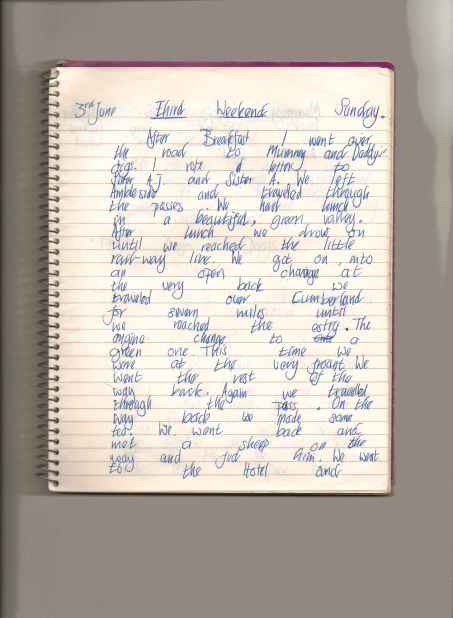 3rd June Third Weekend Sunday.
After Breakfast I went over
the road to Mummy and Daddys
digs. I rote a letter to
A.J and Sister A. We left
Ambleside and traveled through
the passes. We had lunch
in a beautiful, green valley.
After lunch we drove on
until we reached the little
rail-way line. We got on, into
an open change at
the very back we
traveled over Cumberland
for seven miles until
we reached the estry. The
engine change to a
green one. This time we
were at the very froant We
went the rest of the
way back. Again we travelled
through the Pass. On the
way back we made some
tea. We went back and
met a sheep on the
way and fed him. We went
to the Hotel and